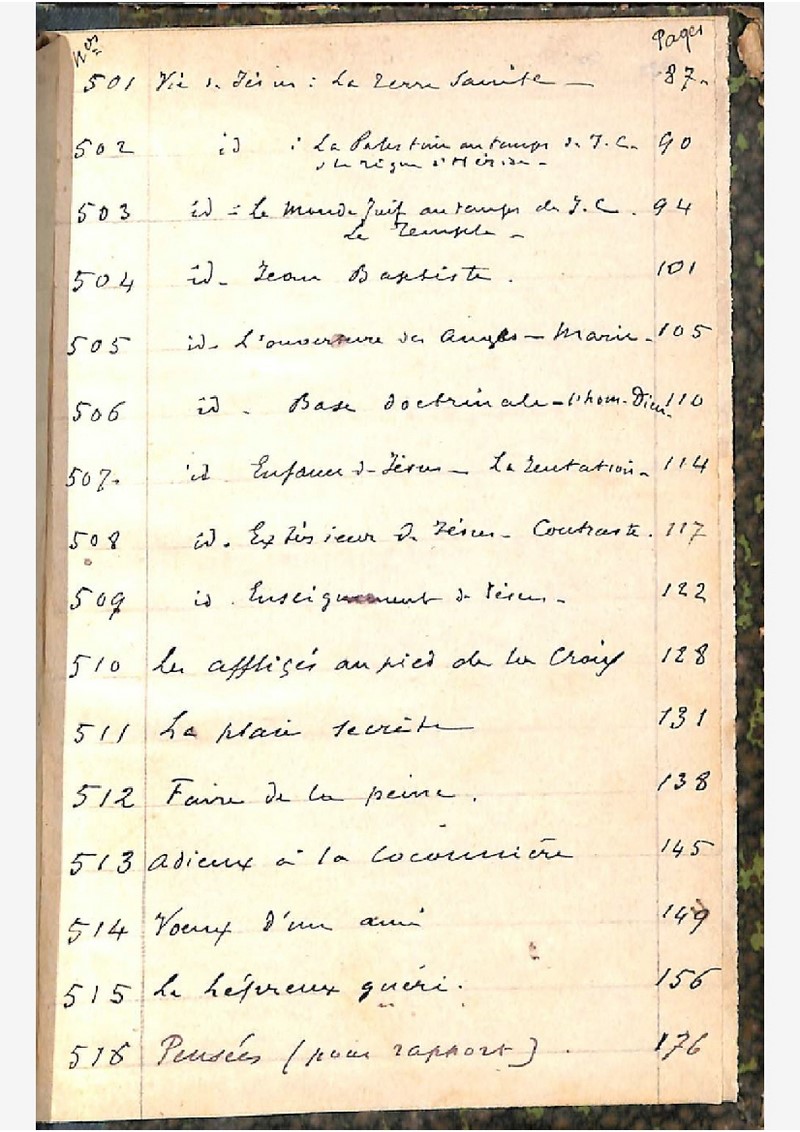 Nos Pages
501 Vie de Jésus : La Terre Sainte — 87.
502 id : La Palestine au temps de J. C. 90
et le règne d'Hérode -
503 id = Le Monde Juif au temps de J. C. 94
Le Temple -
504 id - Jean Baptiste. 101
505 id - L'ouverture des Anges - Marie - 105
506 id - Base doctrinale - l'hom. Dieu - 110
507. id Enfance de Jésus - La Tentation - 114
508 id. Extérieur de Jésus - Contraste. 117
509 id. Enseignement de Jésus - 122
510 Les affligés au pied de la Croix 128
511 La plaie secrète 131
512 Faire de la peine. 138
513 Adieux à la Coconnière 145
514 Voeux d'un ami 149
515 Le Lépreux guéri. 156
516 Pensées (pour rapport). 176